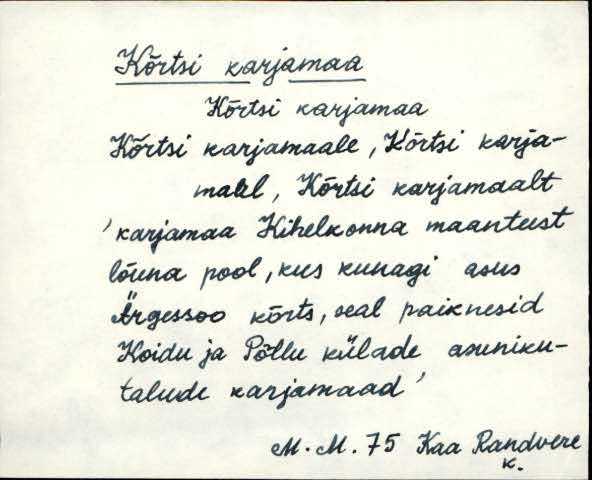 Kõrtsi karjamaa
Kõrtsi karjamaa
Kõrtsi karjamaale, Kõrtsi karja-
maal, Kõrtsi karjamaalt
'karjamaa Kihelkonna maanteest
lõuna pool, kus kunagi asus
Ärgessoo kõrts, seal paiknesid
Koidu ja Põllu külade asuniku-
talude karjamaad'
M. M. 75 Kaa Randvere
k.